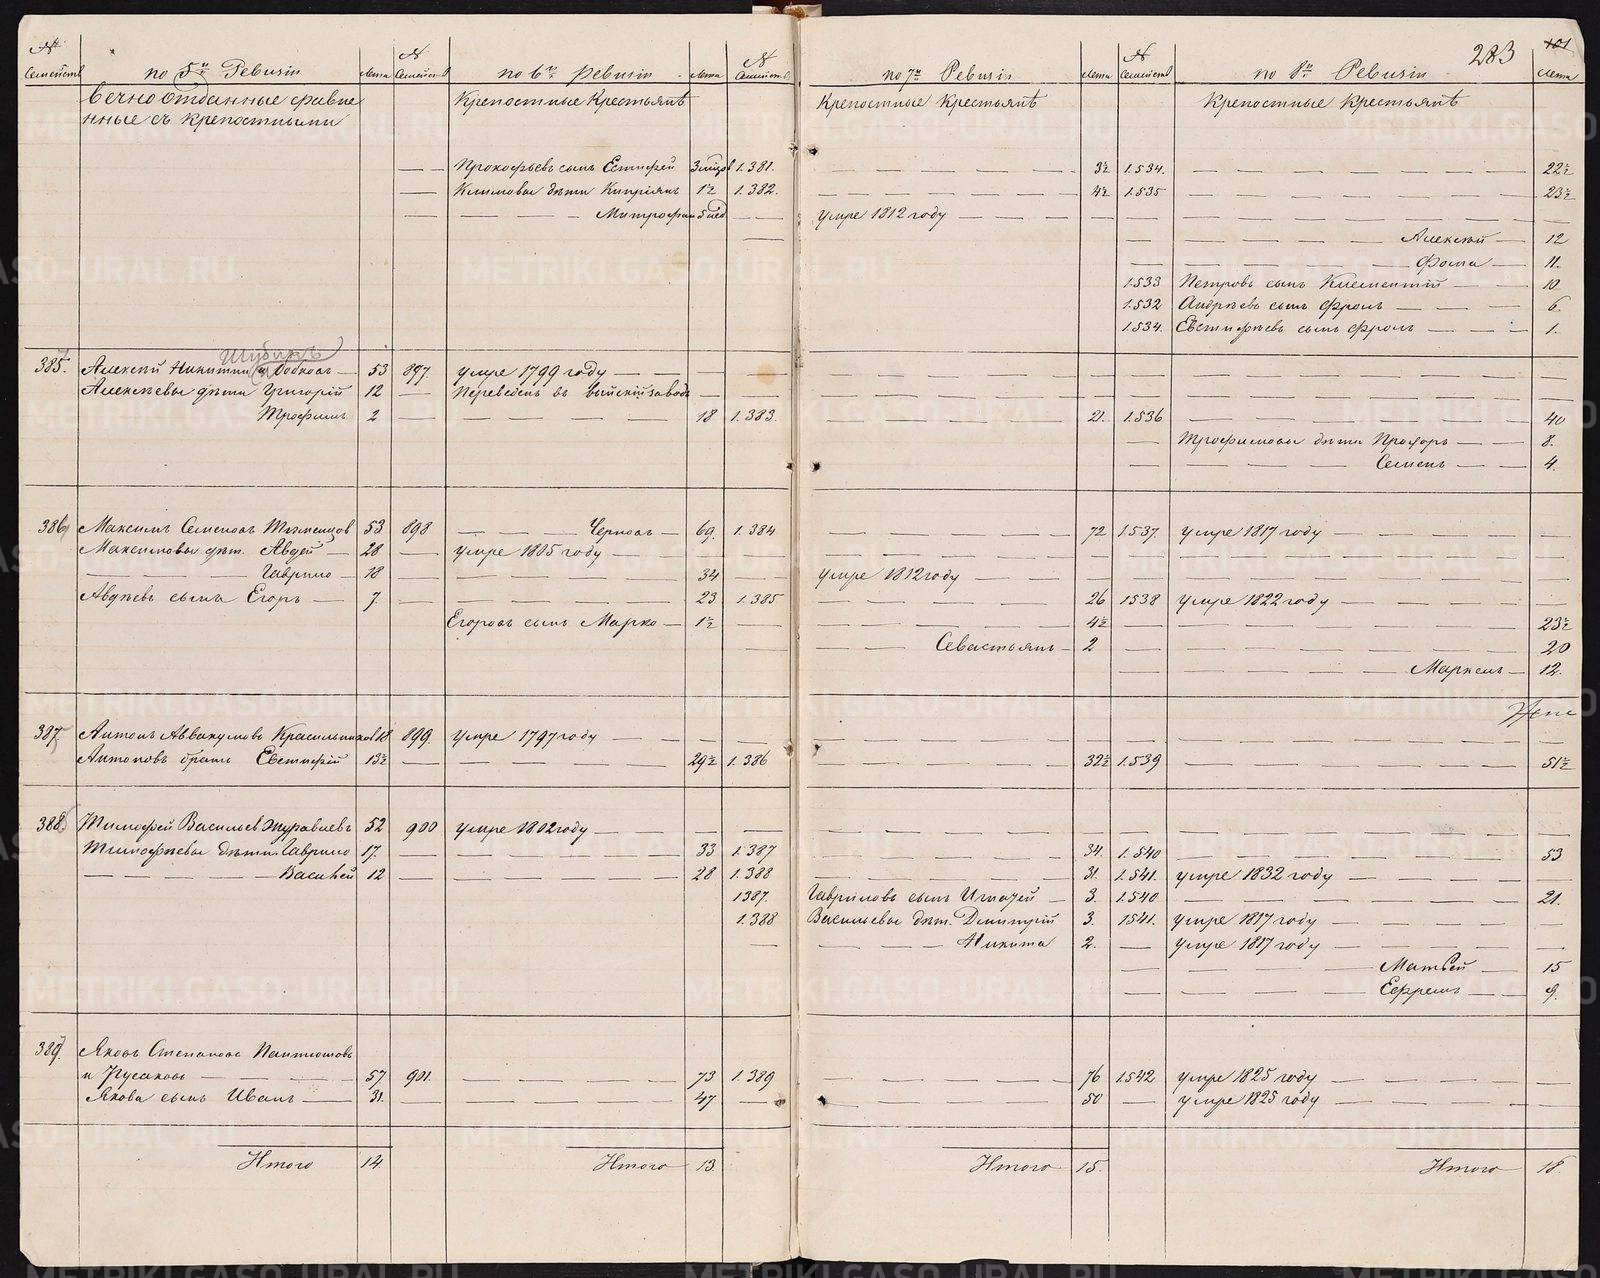 283 101
№ Семейств по 5й Ревизіи Лета № Семейств по 6й Ревизіи Лета № Семейств по 7й Ревизіи Лета № Семейств по 8й Ревизіи Лета
Вечно отданные сравне Крепостные Крестьянѣ Крепостные Крестьянѣ Крепостные Крестьянѣ
нные съ крепостными
Прокофьевъ сынъ Естифей 1.381. 3½ 1.534. 22½
Климовы дѣти Кипріянъ 1½ 1.382. 4½ 1.535 23½
Митрофан умре 1812 году
Алексѣй 12
Фома 11.
1.533 Петровъ сынъ Клементій 10
1.532 Андрѣевъ сынъ Фролъ 6.
1.534. Евстифѣевъ сынъ Фролъ 1.
Шубинъ
385. Алексѣй Никитин Бобковъ 53 897. умре 1799 году
Алексѣевы дѣти Григорій 12 Переведенъ въ Выйскій заводъ
Трофимъ 2 18 1.383. 21. 1.536 40
Трофимовы дѣти Прохоръ 8.
Семенъ 4.
386 Максимъ Семеновъ Тюменцов 53 898 Черновъ 69. 1.384 72 1.537. умре 1817 году
Максимовы дѣт. Авдей 28 умре 1805 году
Гаврило 18 34 умре 1812 году
Авдѣевъ сынъ Егоръ 7. 23 1.385 26 1538 умре 1822 году
Егоровъ сынъ Марко 1½ 4½ 23½
Севастьянъ 2 20
Маркелъ 12.
387 Антонъ Аввакумовъ Красильников 18 899. умре 1797 году
Антоновъ братъ Евстифѣй 13½ 29½ 1.386 32½ 1.539 51½
388. Тимофей Васильев Журавлевъ 52 900 умре 1802 году
Тимофѣевы дѣти Гаврило 17. 33 1.387 34. 1.540 53
Василей 12 28 1.388 31. 1.541. умре 1832 году
1387. Гавриловъ сынъ Игнатей 3. 1.540 21.
1.388 Васильевы дѣт. Дмитрій 3. 1541. умре 1817 году
Никита 2. умре 1817 году
Матвей 15
Ефремъ 9.
389. Яковъ Степановъ Пантюховъ
и Русаковъ 57. 901. 73 1.389 76 1542 умре 1825 году
Якова сынъ Иванъ 31. 47 50 умре 1825 году
Итого 14. Итого 13 Итого 15. Итого 18.
METRIKI.GASO-URAL.RU